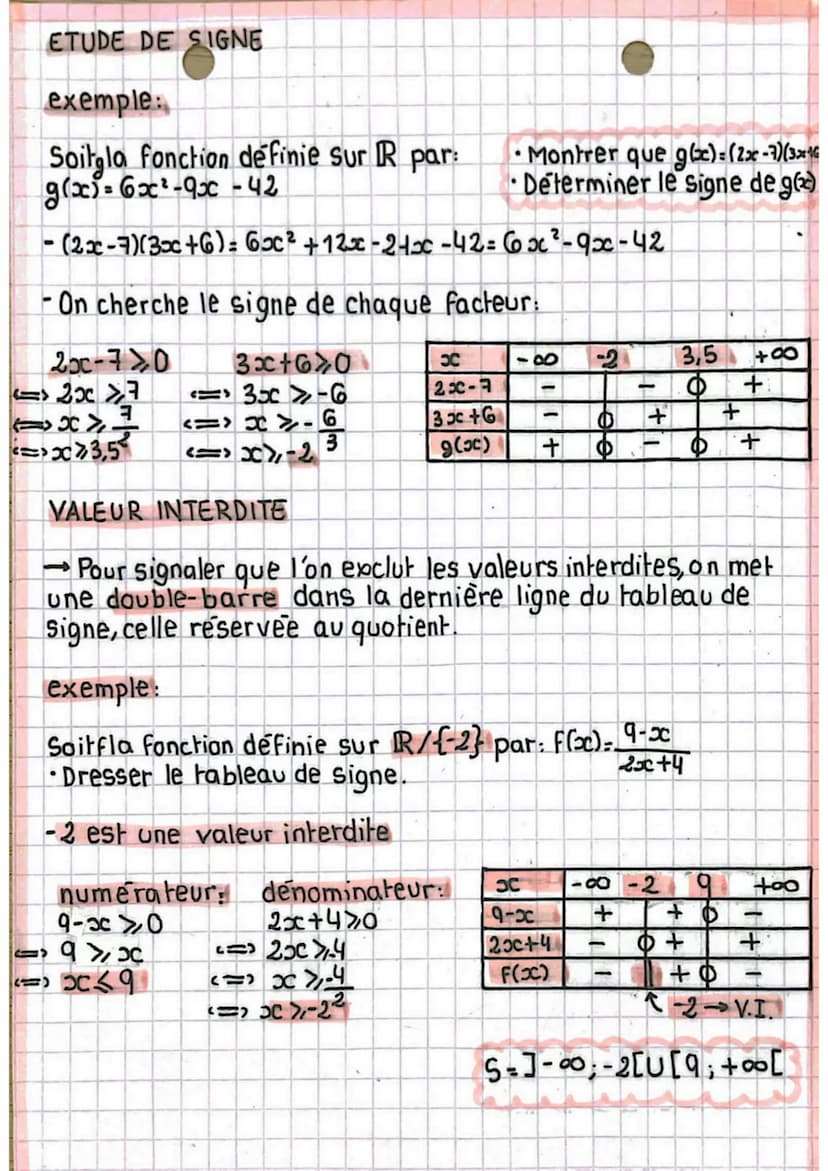 ETUDE DE SIGNE
exemple:
Soit g la fonction définie sur ℝ par:
g(x)= 6x² -9x - 42
• Montrer que g(x)=(2x-7)(3x+6
• Déterminer le signe de g(x)
- (2x-7)(3x+6)= 6x² +12x -21x -42= 6x²-9x-42
- On cherche le signe de chaque facteur:
2x-7⩾0
⟺ 2x ⩾7
⟺ x ⩾ 7/2
⟺ x⩾3,5
3x+6⩾0
⟺ 3x ⩾ -6
⟺ x ⩾ -6/3
⟺ x⩾ -2
x -∞ -2 3,5 +∞
2x-7 - - 0 +
3x+6 - 0 + +
g(x) + 0 - 0 +
VALEUR INTERDITE
→ Pour signaler que l'on exclut les valeurs interdites, on met
une double-barre dans la dernière ligne du tableau de
signe, celle réservée au quotient.
exemple:
Soit f la fonction définie sur ℝ/{-2} par: f(x)= 9-x/2x+4
• Dresser le tableau de signe.
-2 est une valeur interdite
numérateur:
9-x ⩾0
⟺ 9 ⩾ x
⟺ x⩽9
dénominateur:
2x+4⩾0
⟺ 2x ⩾-4
⟺ x ⩾ -4/2
⟺ x ⩾ -2
x -∞ -2 9 +∞
9-x + + 0 -
2x+4 - 0 + +
f(x) - || + 0 -
↖ -2 → V.I.
S=]-∞;-2[U[9;+∞[